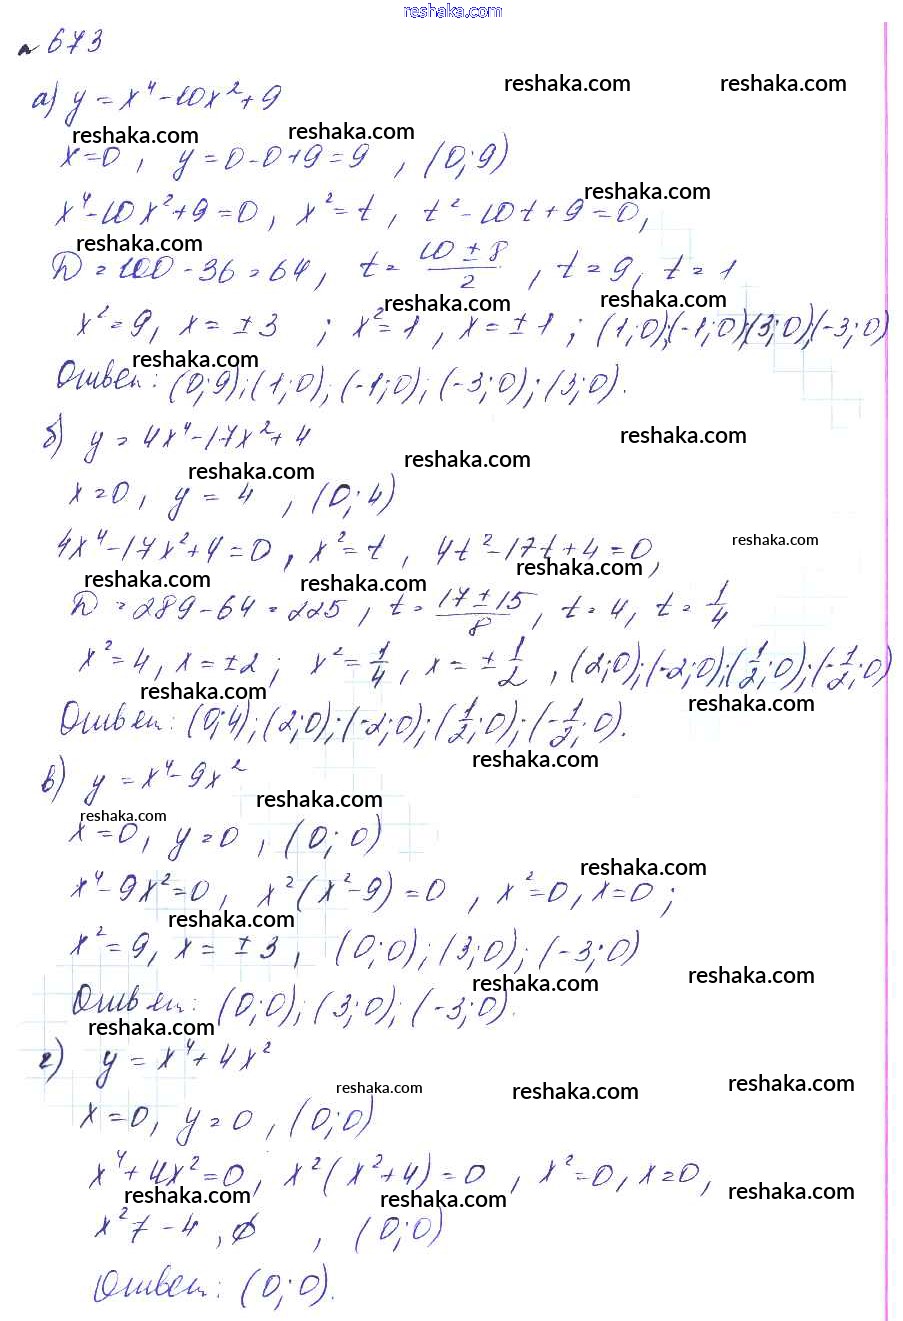 reshaka.com
№ 673
reshaka.com reshaka.com
а) y = x⁴ - 10x² + 9
reshaka.com reshaka.com
x=0, y = 0-0+9=9, (0;9)
reshaka.com
x⁴-10x²+9=0, x²=t, t²-10t+9=0,
reshaka.com
D=100-36=64, t= (10±8)/2, t=9, t=1
reshaka.com reshaka.com
x²=9, x=±3; x²=1, x=±1; (1;0);(-1;0);(3;0);(-3;0)
reshaka.com
Ответ: (0;9);(1;0);(-1;0);(-3;0);(3;0).
reshaka.com
б) y = 4x⁴-17x²+4
reshaka.com reshaka.com
x=0, y = 4, (0;4)
reshaka.com
4x⁴-17x²+4=0, x²=t, 4t²-17t+4=0,
reshaka.com reshaka.com reshaka.com
D=289-64=225, t= (17±15)/8, t=4, t= 1/4
x²=4, x=±2; x²=1/4, x=±1/2, (2;0);(-2;0);(1/2;0);(-1/2;0)
reshaka.com reshaka.com
Ответ: (0;4);(2;0);(-2;0);(1/2;0);(-1/2;0).
reshaka.com
в) y = x⁴-9x²
reshaka.com
reshaka.com
x=0, y=0, (0;0)
reshaka.com
x⁴-9x²=0, x²(x²-9)=0, x²=0, x=0;
reshaka.com
x²=9, x=±3, (0;0);(3;0);(-3;0)
reshaka.com reshaka.com
Ответ: (0;0);(3;0);(-3;0).
reshaka.com
г) y = x⁴+4x²
reshaka.com reshaka.com reshaka.com
x=0, y=0, (0;0)
x⁴+4x²=0, x²(x²+4)=0, x²=0, x=0,
reshaka.com reshaka.com reshaka.com
x²≠-4, ∅, (0;0)
Ответ: (0;0).